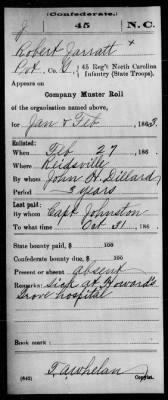 (Confederate.)
J 45 N.C.
Robert Jarratt
Pvt, Co. G, 45 Reg't North Carolina
Infantry (State Troops).
Appears on
Company Muster Roll
of the organization named above,
for Jan & Feb, 1863.
Enlisted:
When Feb 27, 186
Where Reidsville
By whom John H. Dillard
Period 3 years
Last paid:
By whom Capt Johnston
To what time Oct 31, 186
State bounty paid, $ 100
Confederate bounty due, $ 100
Present or absent absent
Remarks: Sick at Howard's
Grove hospital
Book mark:
T.A. Whelan
(642) Copyist.